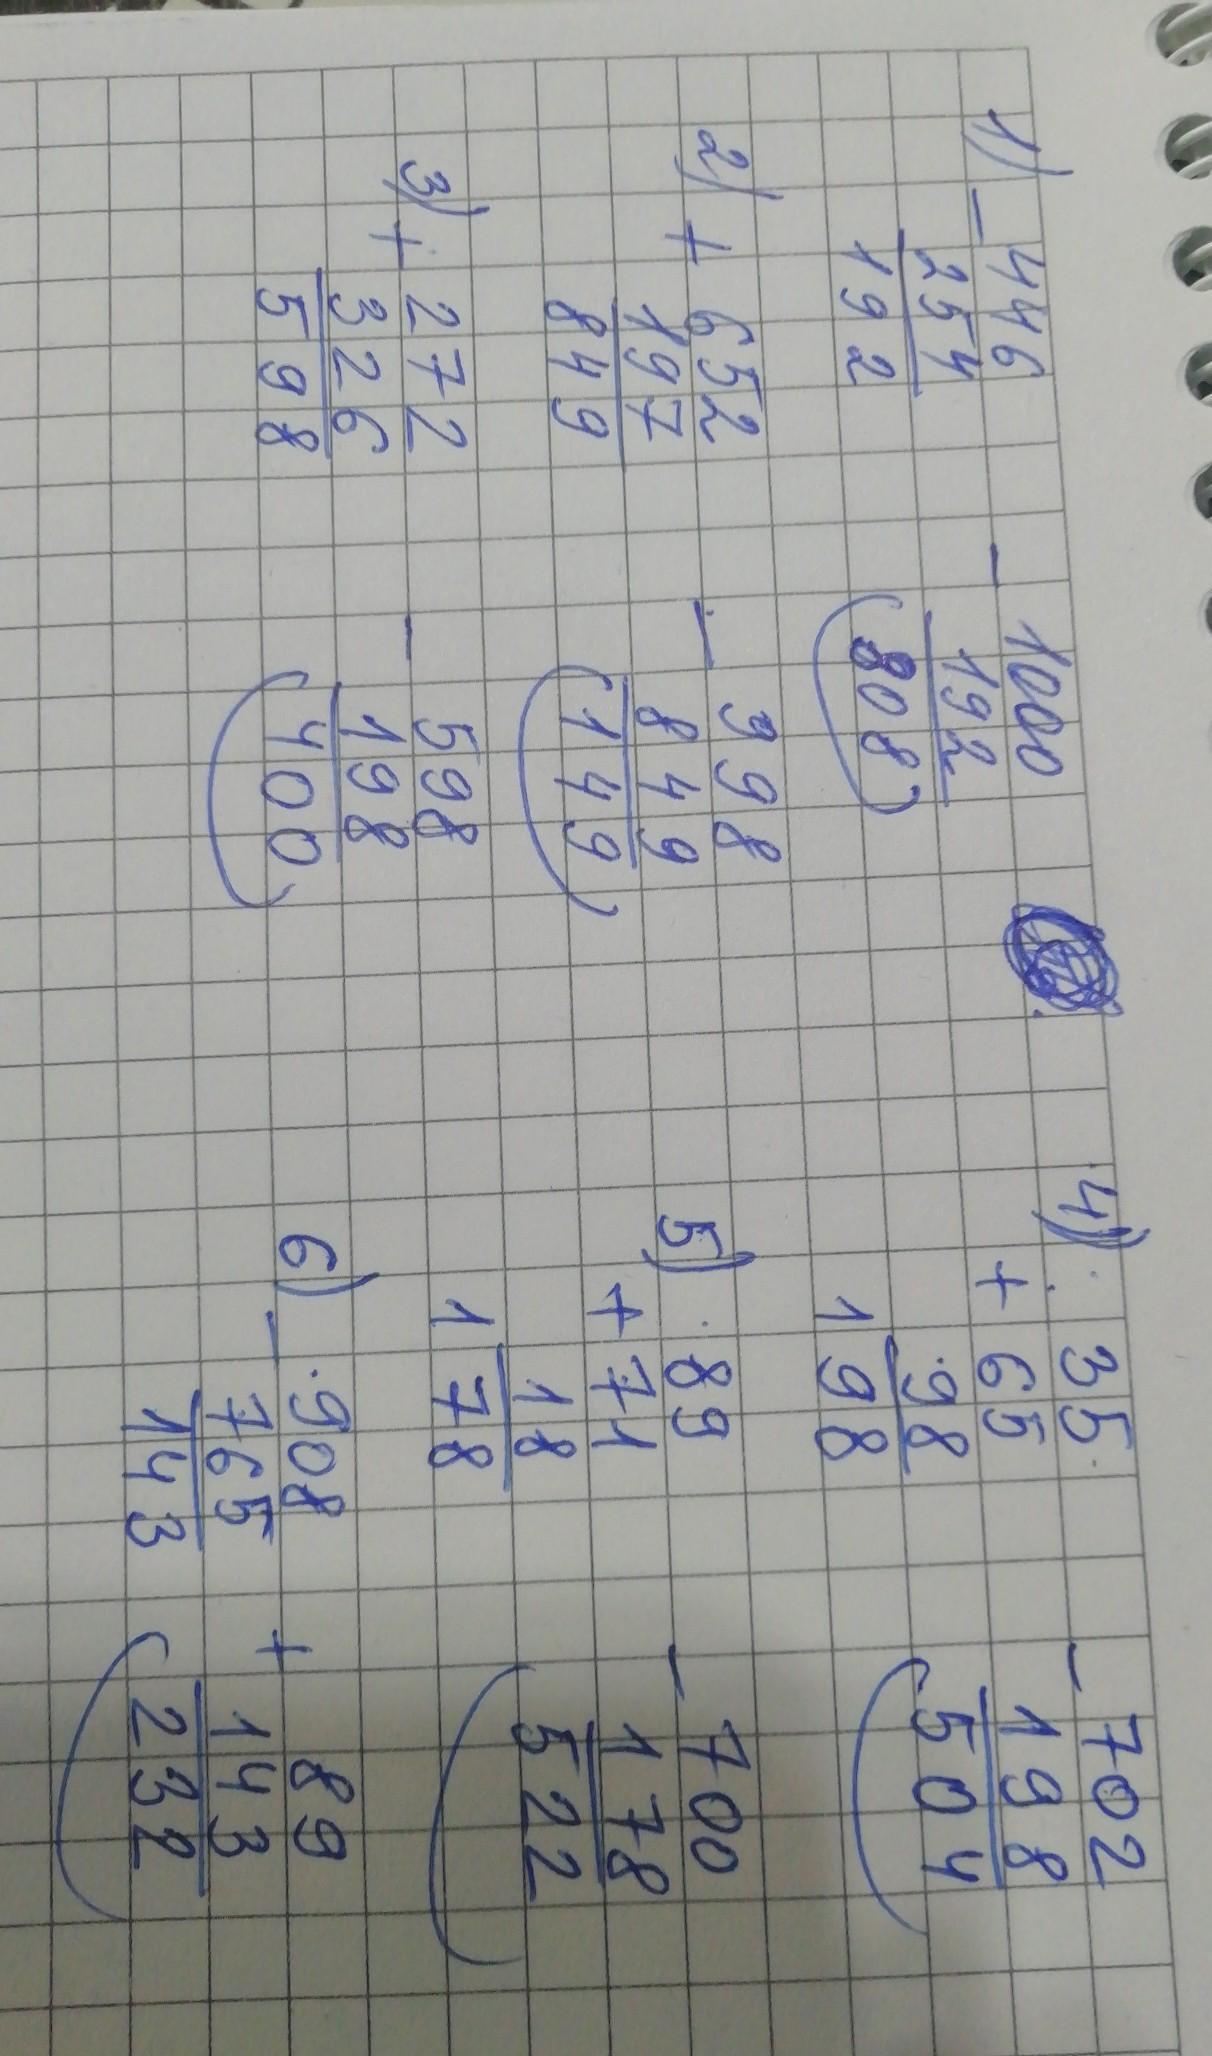 1) - 446
254
192
- 1000
192
808
2) + 652
197
849
- 998
849
149
3) + 272
326
598
- 598
198
400
4) 35
+ 65
98
198
- 702
198
504
5) 89
+ 71
18
178
- 700
178
522
6) - 908
765
143
+ 89
143
232